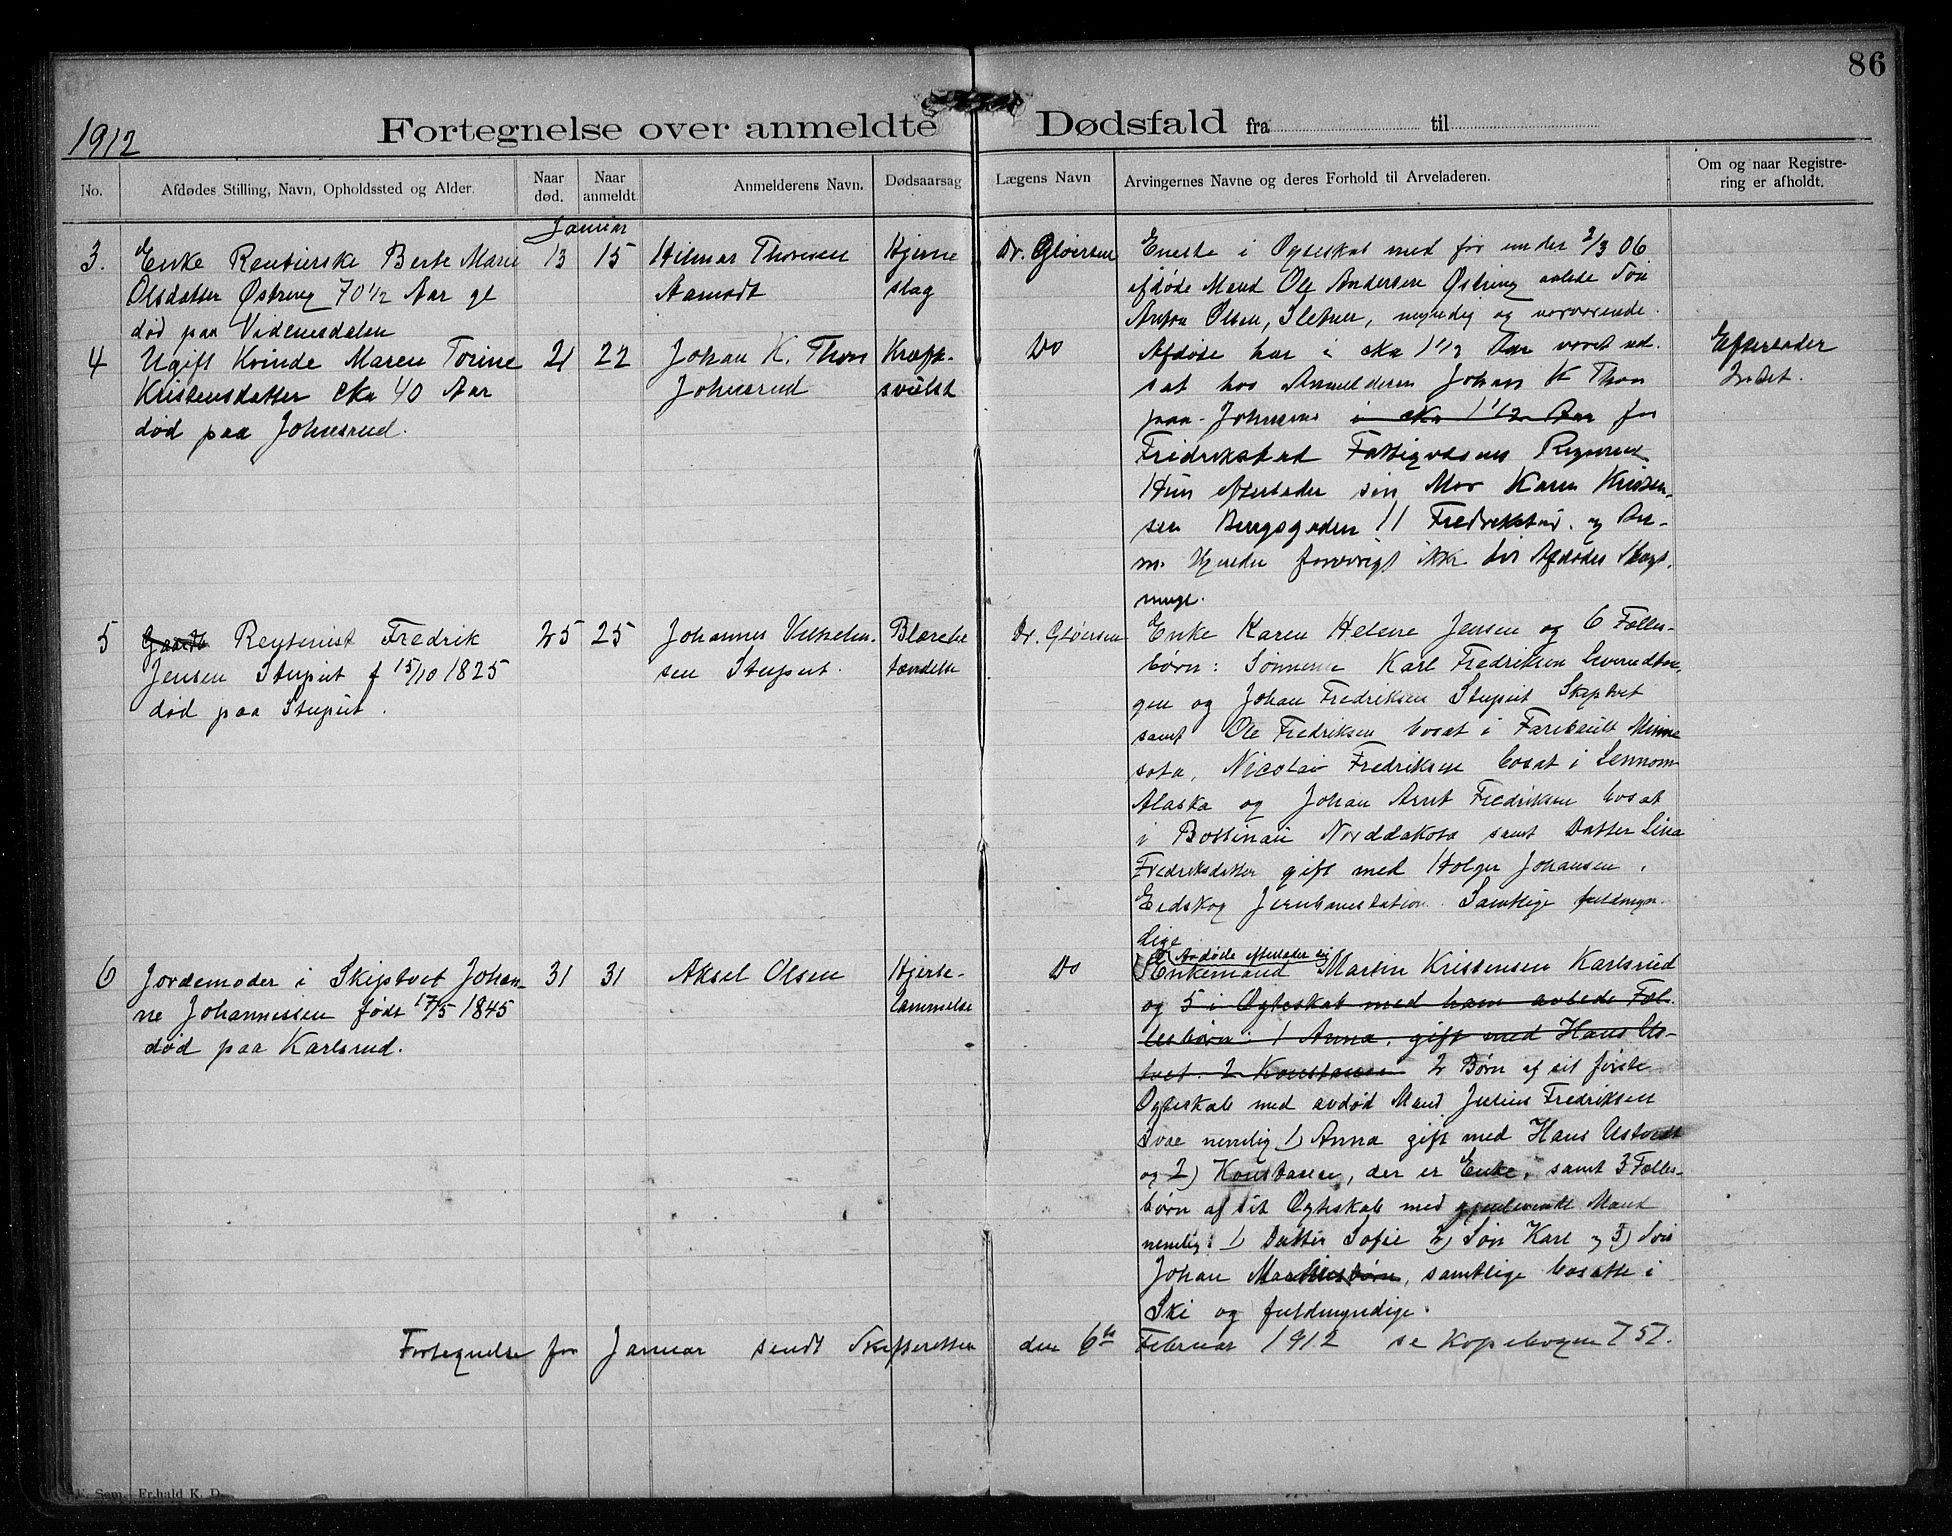 86
1912
Fortegnelse over anmeldte Dødsfald fra til
No.
Afdødes Stilling, Navn, Opholdssted og Alder.
Naar død.
Naar anmeldt
Anmelderens Navn.
Dødsaarsag
Lægens Navn
Arvingernes Navne og deres Forhold til Arveladeren.
Om og naar Registre-
ring er afholdt.
Januar
3.
Enke Rentierske Berte Marie
Olsdatter Østreng 70 1/2 Aar gl
død paa
13
15
Hilmar Thoresen
Aamodt
Hjerne
slag
Dr. Gløersen
Eneste i Ægteskab med før under 2/3 06
afdøde Mand Ole Andersen Østreng avlede Søn
Anton Olsen, Sletner, myndig og nærværende.
4
Ugift Kvinde Maren Torine
Kristensdatter cka 40 Aar
død paa Johnsrud.
21
22
Johan K. Thon
Johnsrud
Kræft-
svulst
Do
Afdøde har i cka 1 1/2 Aar været ud-
sat hos Anmelderen Johan K Thon
paa Johnsrud i cka 1 1/2 Aar for
Fredrikstad Fattigvæsens Regning
Hun efterlader sin Mor Karen Kristen-
sen 11 Fredrikstad. og An-
m. kjender forøvrigt ikke til Afdødes Slægt-
ninge.
Efterlader
Intet.
5
Gaardb Rentenist Fredrik
Jensen Stuput f 15/10 1825
død paa Stuput.
25
25
Johannes Vilhelm-
sen Stuput.
Blærebe
tændelse
Dr. Gløersen
Enke Karen Helene Jensen og 6 Fælles-
børn: Sønnerne Karl Fredriksen
gen og Johan Fredriksen Stuput Skiptvet
samt Ole Fredriksen bosat i Faribault Minne
sota, Nicolai Fredriksen bosat i
Alaska og Johan Arnt Fredriksen bosat
i Bottinau Norddakota samt Datter Lina
Fredriksdatter gift med Holger Johansen,
Eidskog Jernbanestation. Samtlige fuldmyn-
dige
6
Jordemoder i Skiptvet Johan-
ne Johannessen født 17/5 1845
død paa Karlsrud.
31
31
Aksel Olsen
Hjerte-
lammelse
Do
Avdøde efterlader sig
Enkemand Martin Kristensen Karlsrud
og 5 i Ægteskab med ham avlede Fæl-
lesbørn: 1 Anna, gift med Hans Us-
tvet. 2 Konstanse 2 Børn af sit første
Ægteskab med avdød Mand Julius Fredriksen
nemlig 1) Anna gift med Hans Ustvedt
og 2) Konstanse, der er Enke, samt 3 Fælles-
børn af sit Ægteskab med gjenlevende Mand
nemlig: 1) Datter Sofie 2) Søn Karl og 3) Søn
Johan, samtlige bosatte i
Ski og fuldmyndige.
Fortegnelse for Januar sendt Skifteretten den 6te Februar 1912 se Kopiebogen 757.
K. Søm. Fr.hald K. D.